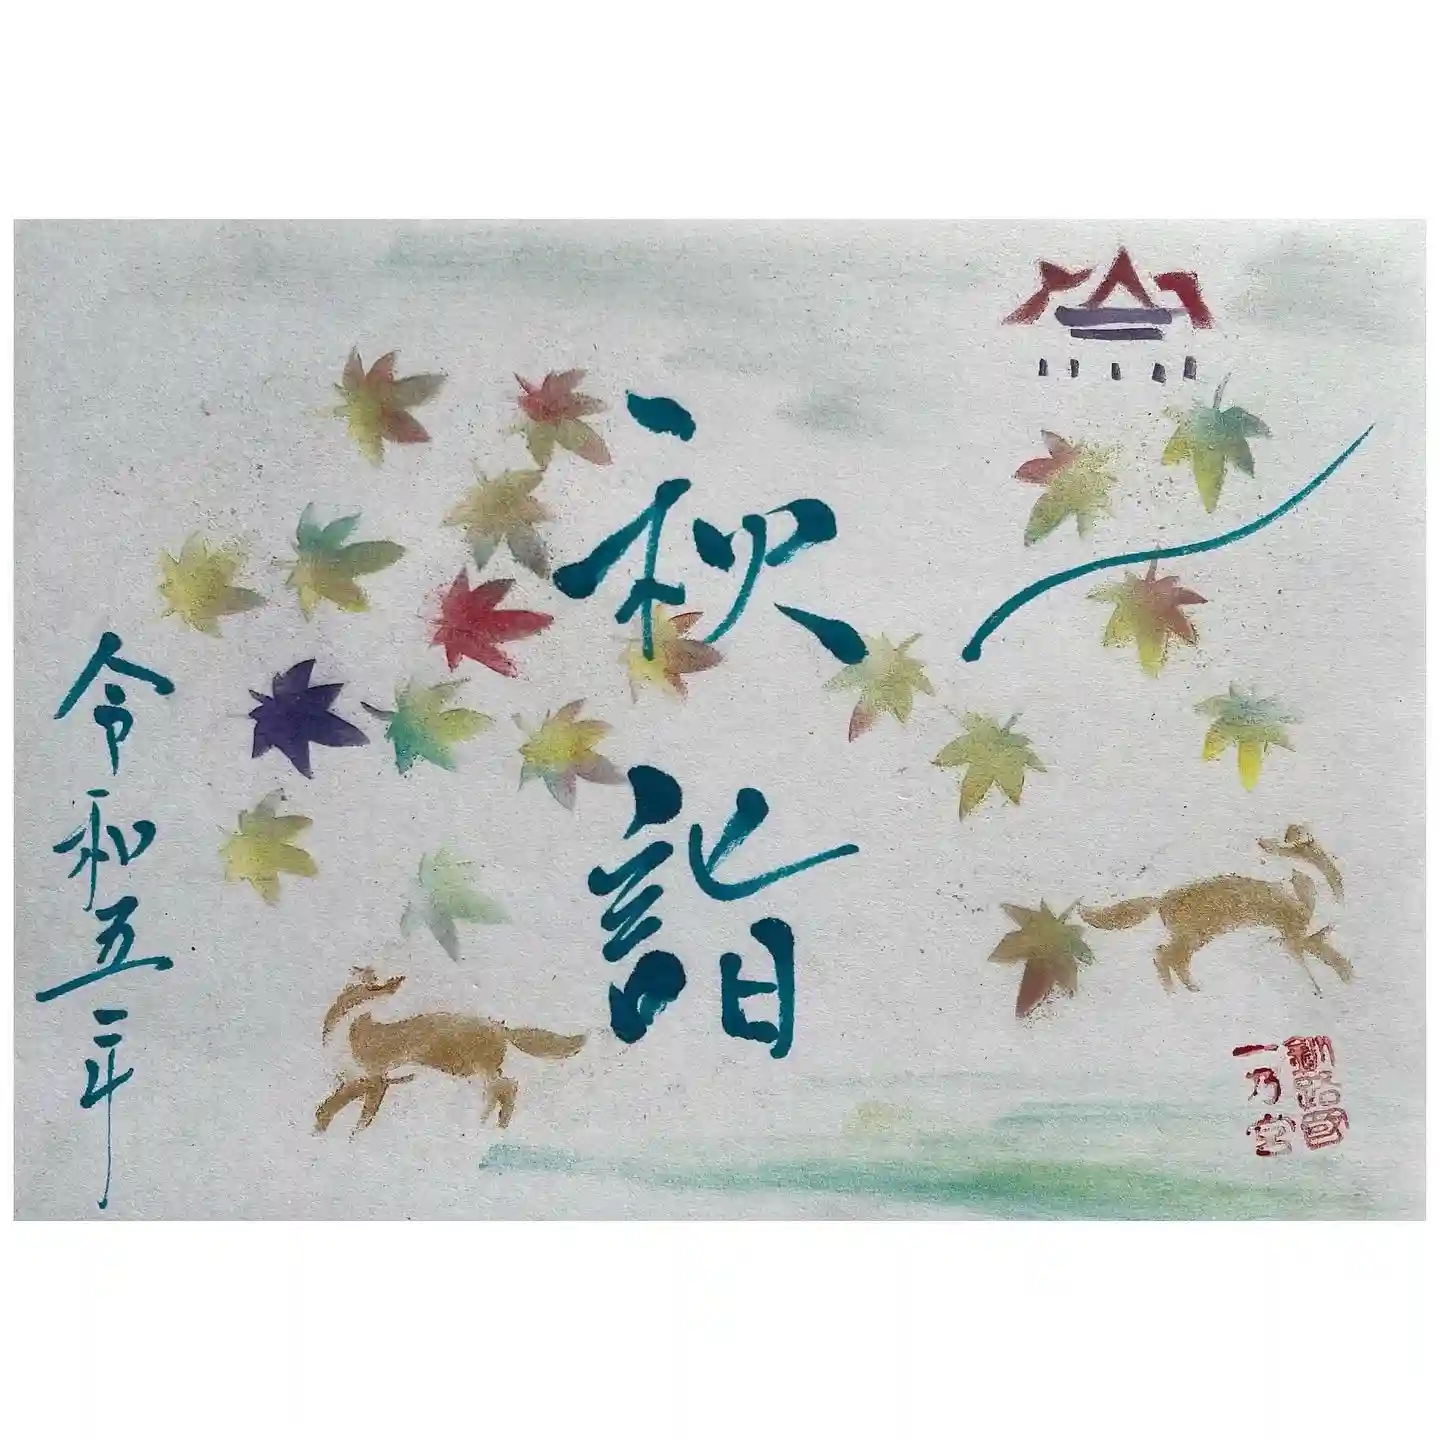 釧路國
一乃宮
秋詣
令和五年